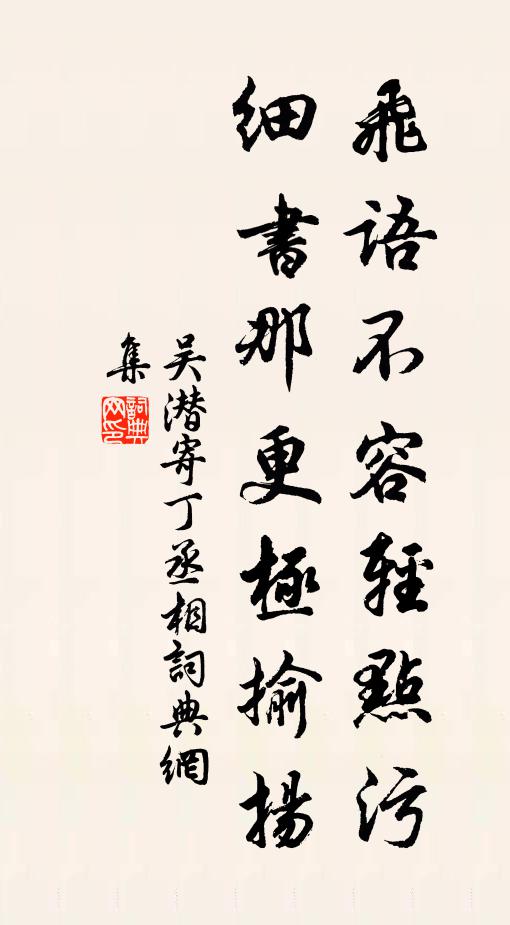 飛語不容輕點污
細書那更極揄揚
吴潛寄丁丞相詞典網
集
詞典網印